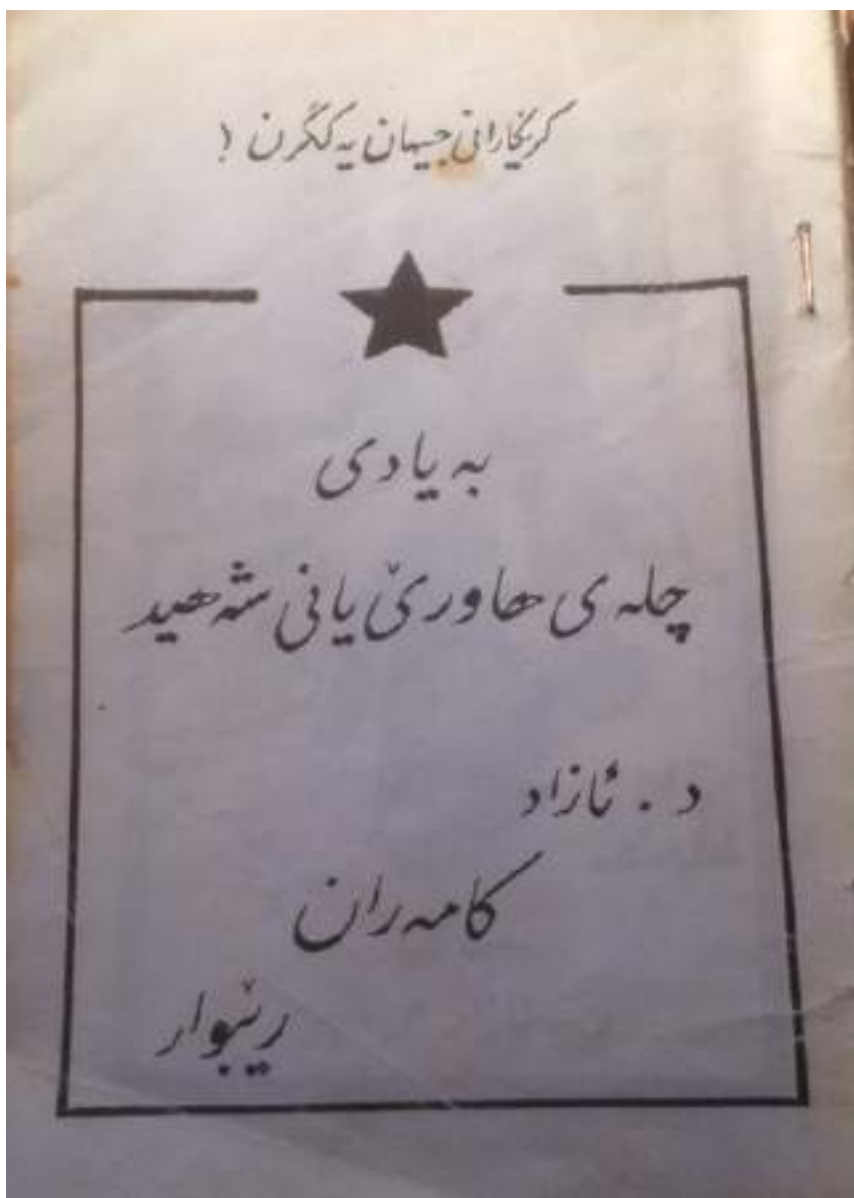 کرێکارانی جیهان یه‌کگرن !
به یادی
چله ی هاورێ یانی شه‌هید
د . ئازاد
کامه‌ران
رێبوار